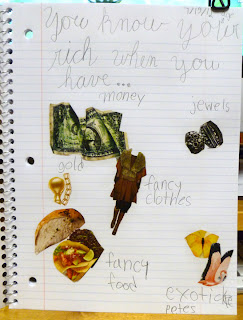 You know you're
rich when you
have...
money
jewels
gold
fancy
clothes
fancy
food
exotic